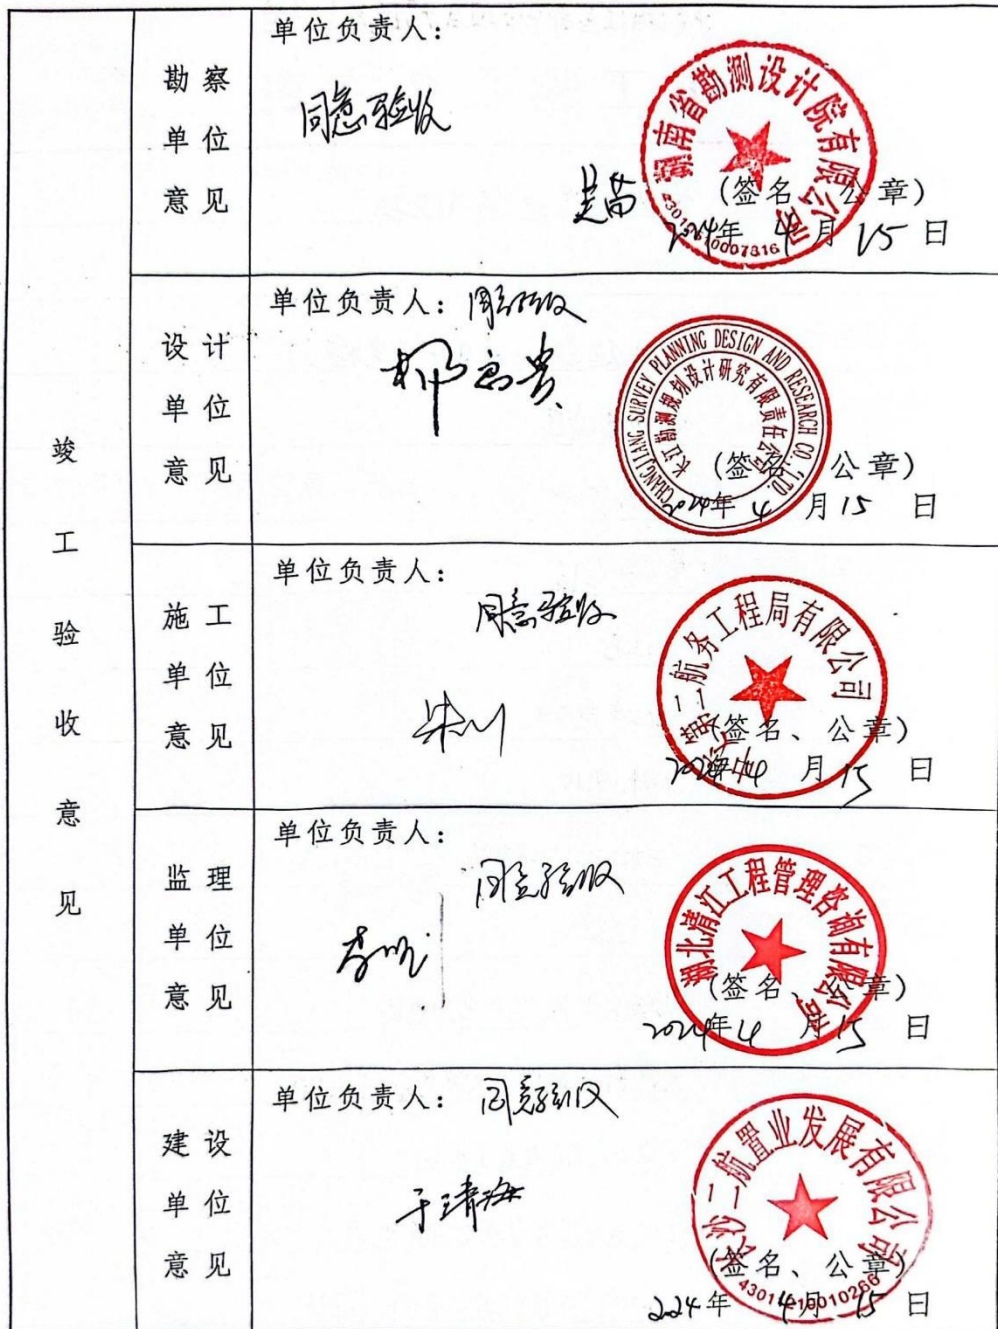 竣工验收意见
勘察单位意见
单位负责人：
同意验收
湖南省勘测设计院有限公司
(签名、公章)
2024年 4月 15 日
设计单位意见
单位负责人：同意验收
CHANGJIANG SURVEY PLANNING DESIGN AND RESEARCH CO., LTD
长江勘测规划设计研究有限责任公司
(签名、公章)
2024年 4 月 15 日
施工单位意见
单位负责人：
同意验收
朱川
中交第二航务工程局有限公司
(签名、公章)
2024年 4 月 15 日
监理单位意见
单位负责人：
同意验收
湖北清江工程管理咨询有限公司
(签名、公章)
2024年 4 月 15 日
建设单位意见
单位负责人：同意验收
于靖海
长沙二航置业发展有限公司
(签名、公章)
2024年 4月 15 日